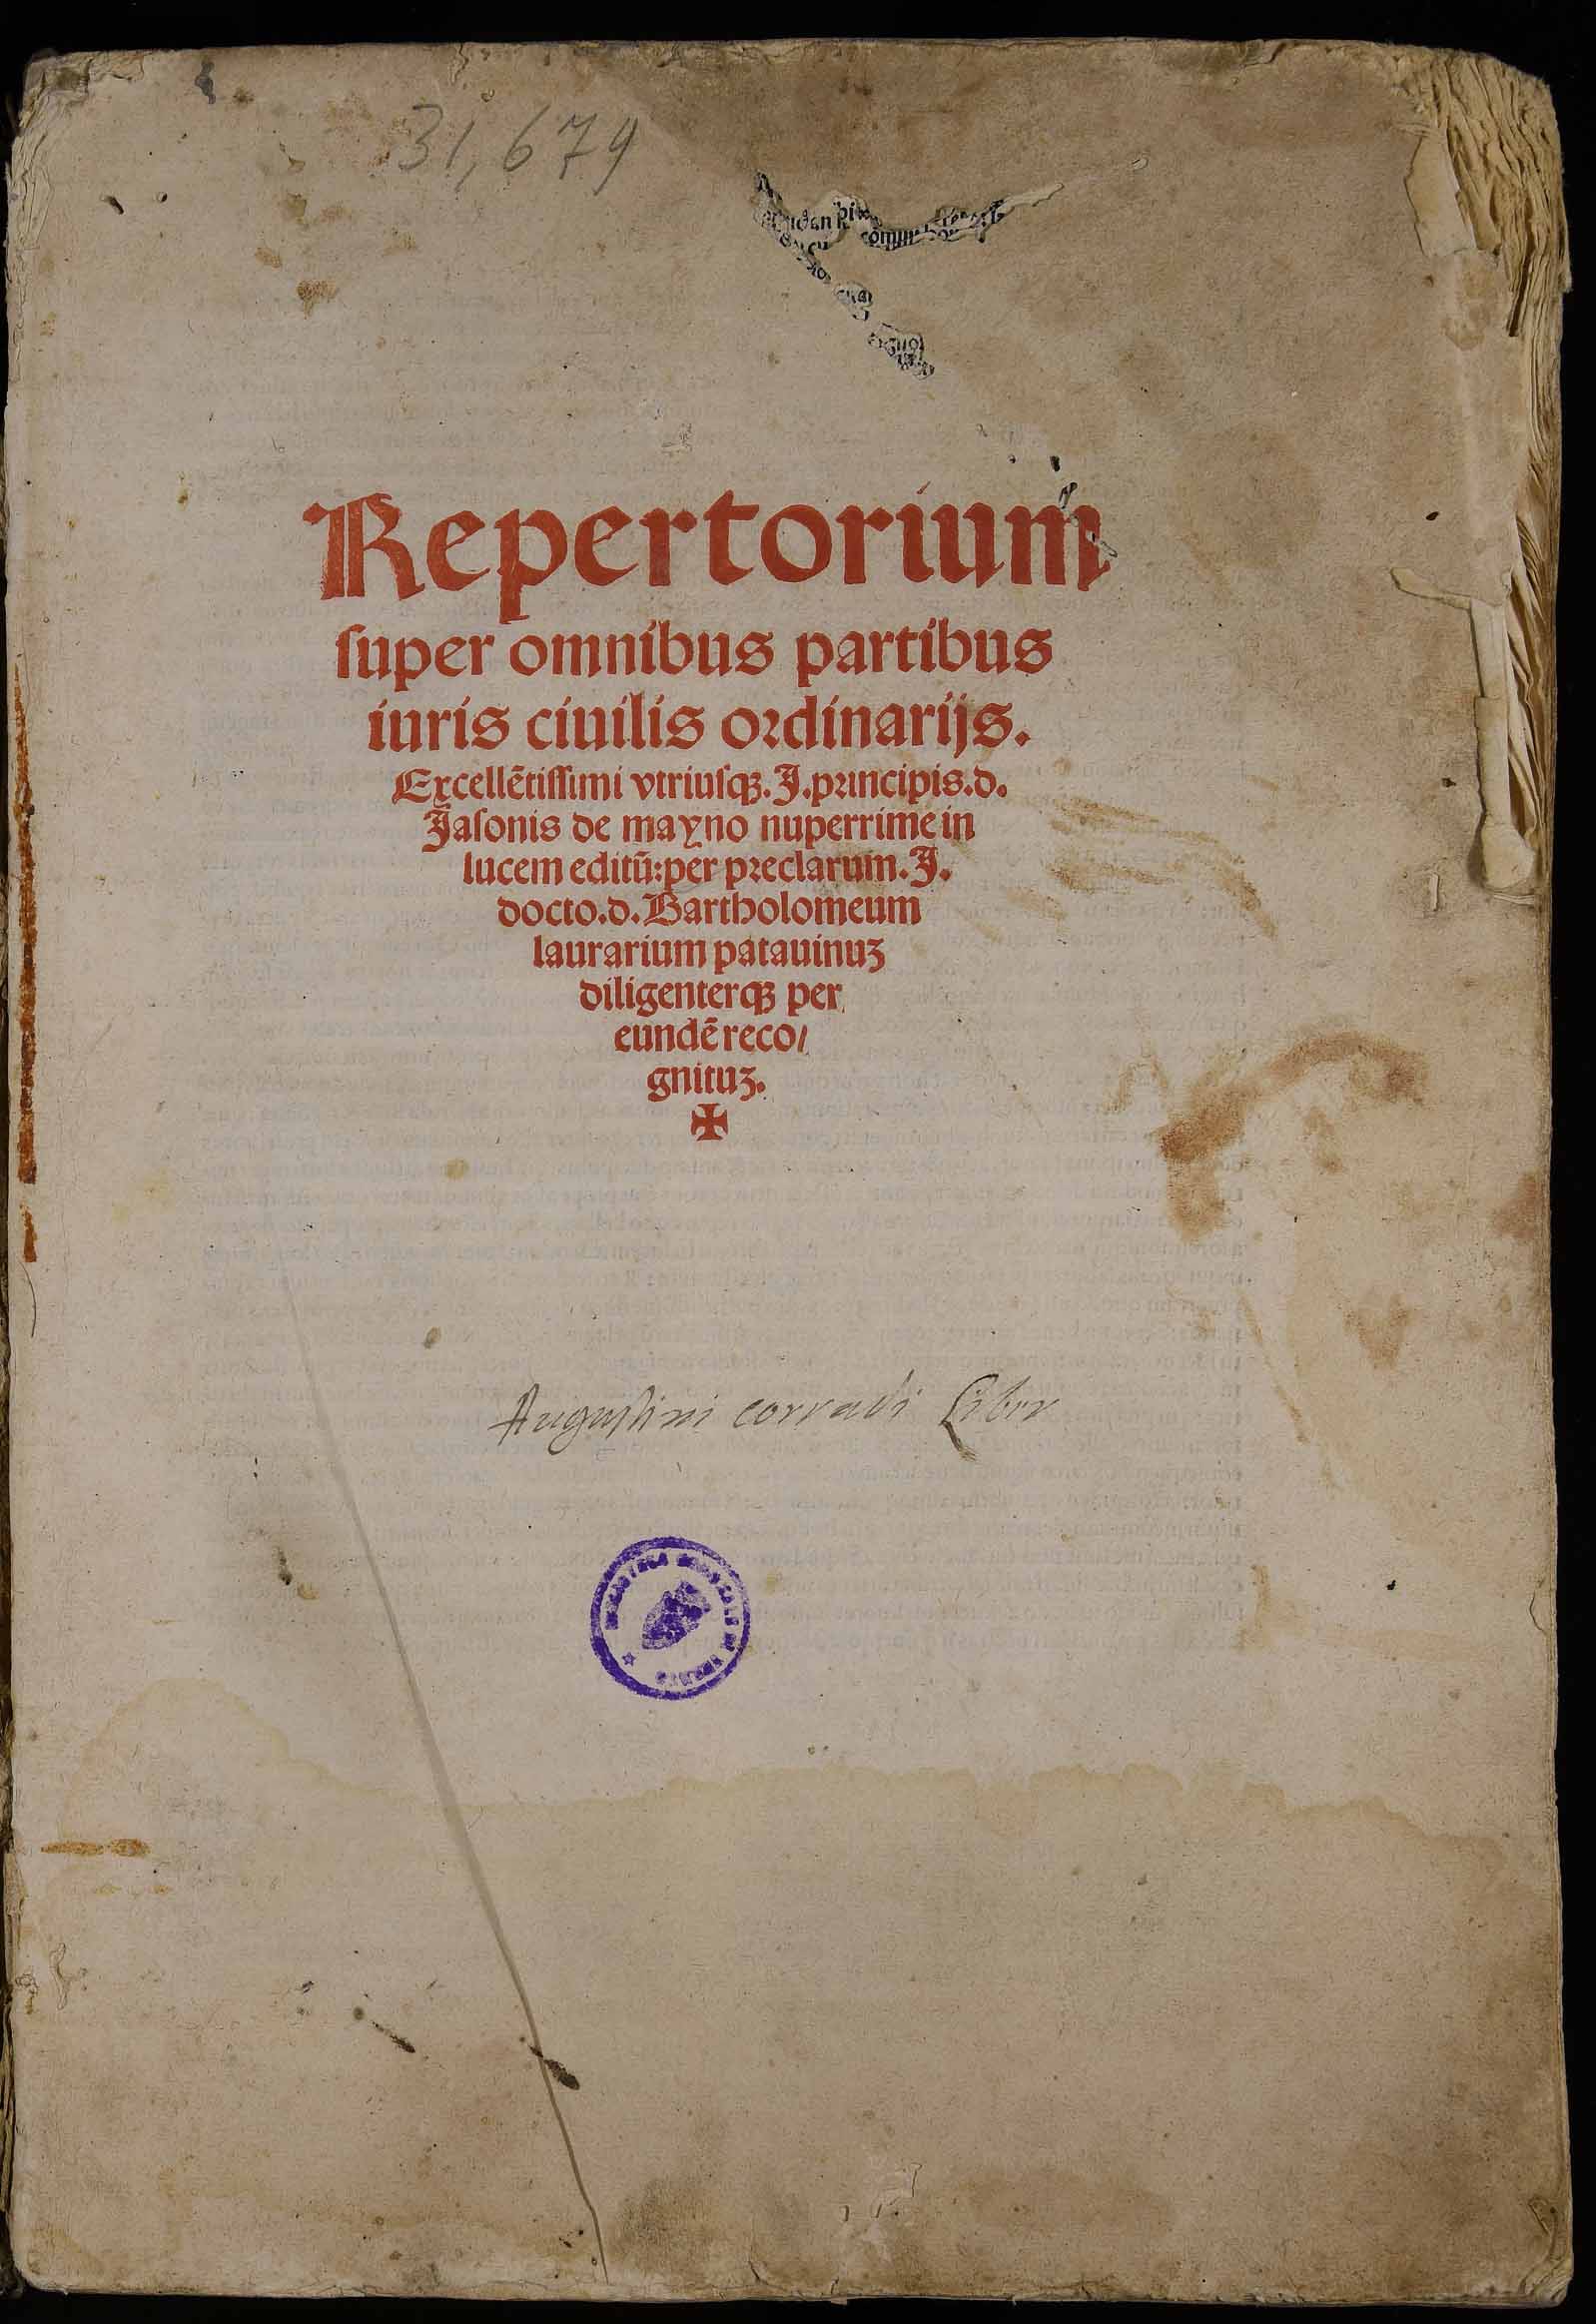 31,679
Repertorium
super omnibus partibus
iuris ciuilis ordinarijs.
Excellẽtissimi vtriusqꝫ. J. principis. d.
Jasonis de mayno nuperrime in
lucem editũ: per preclarum. J.
docto. d. Bartholomeum
laurarium patauinuꝫ
diligenterqꝫ per
eundẽ reco/
gnituꝫ.
✠
Augustini corradi Liber